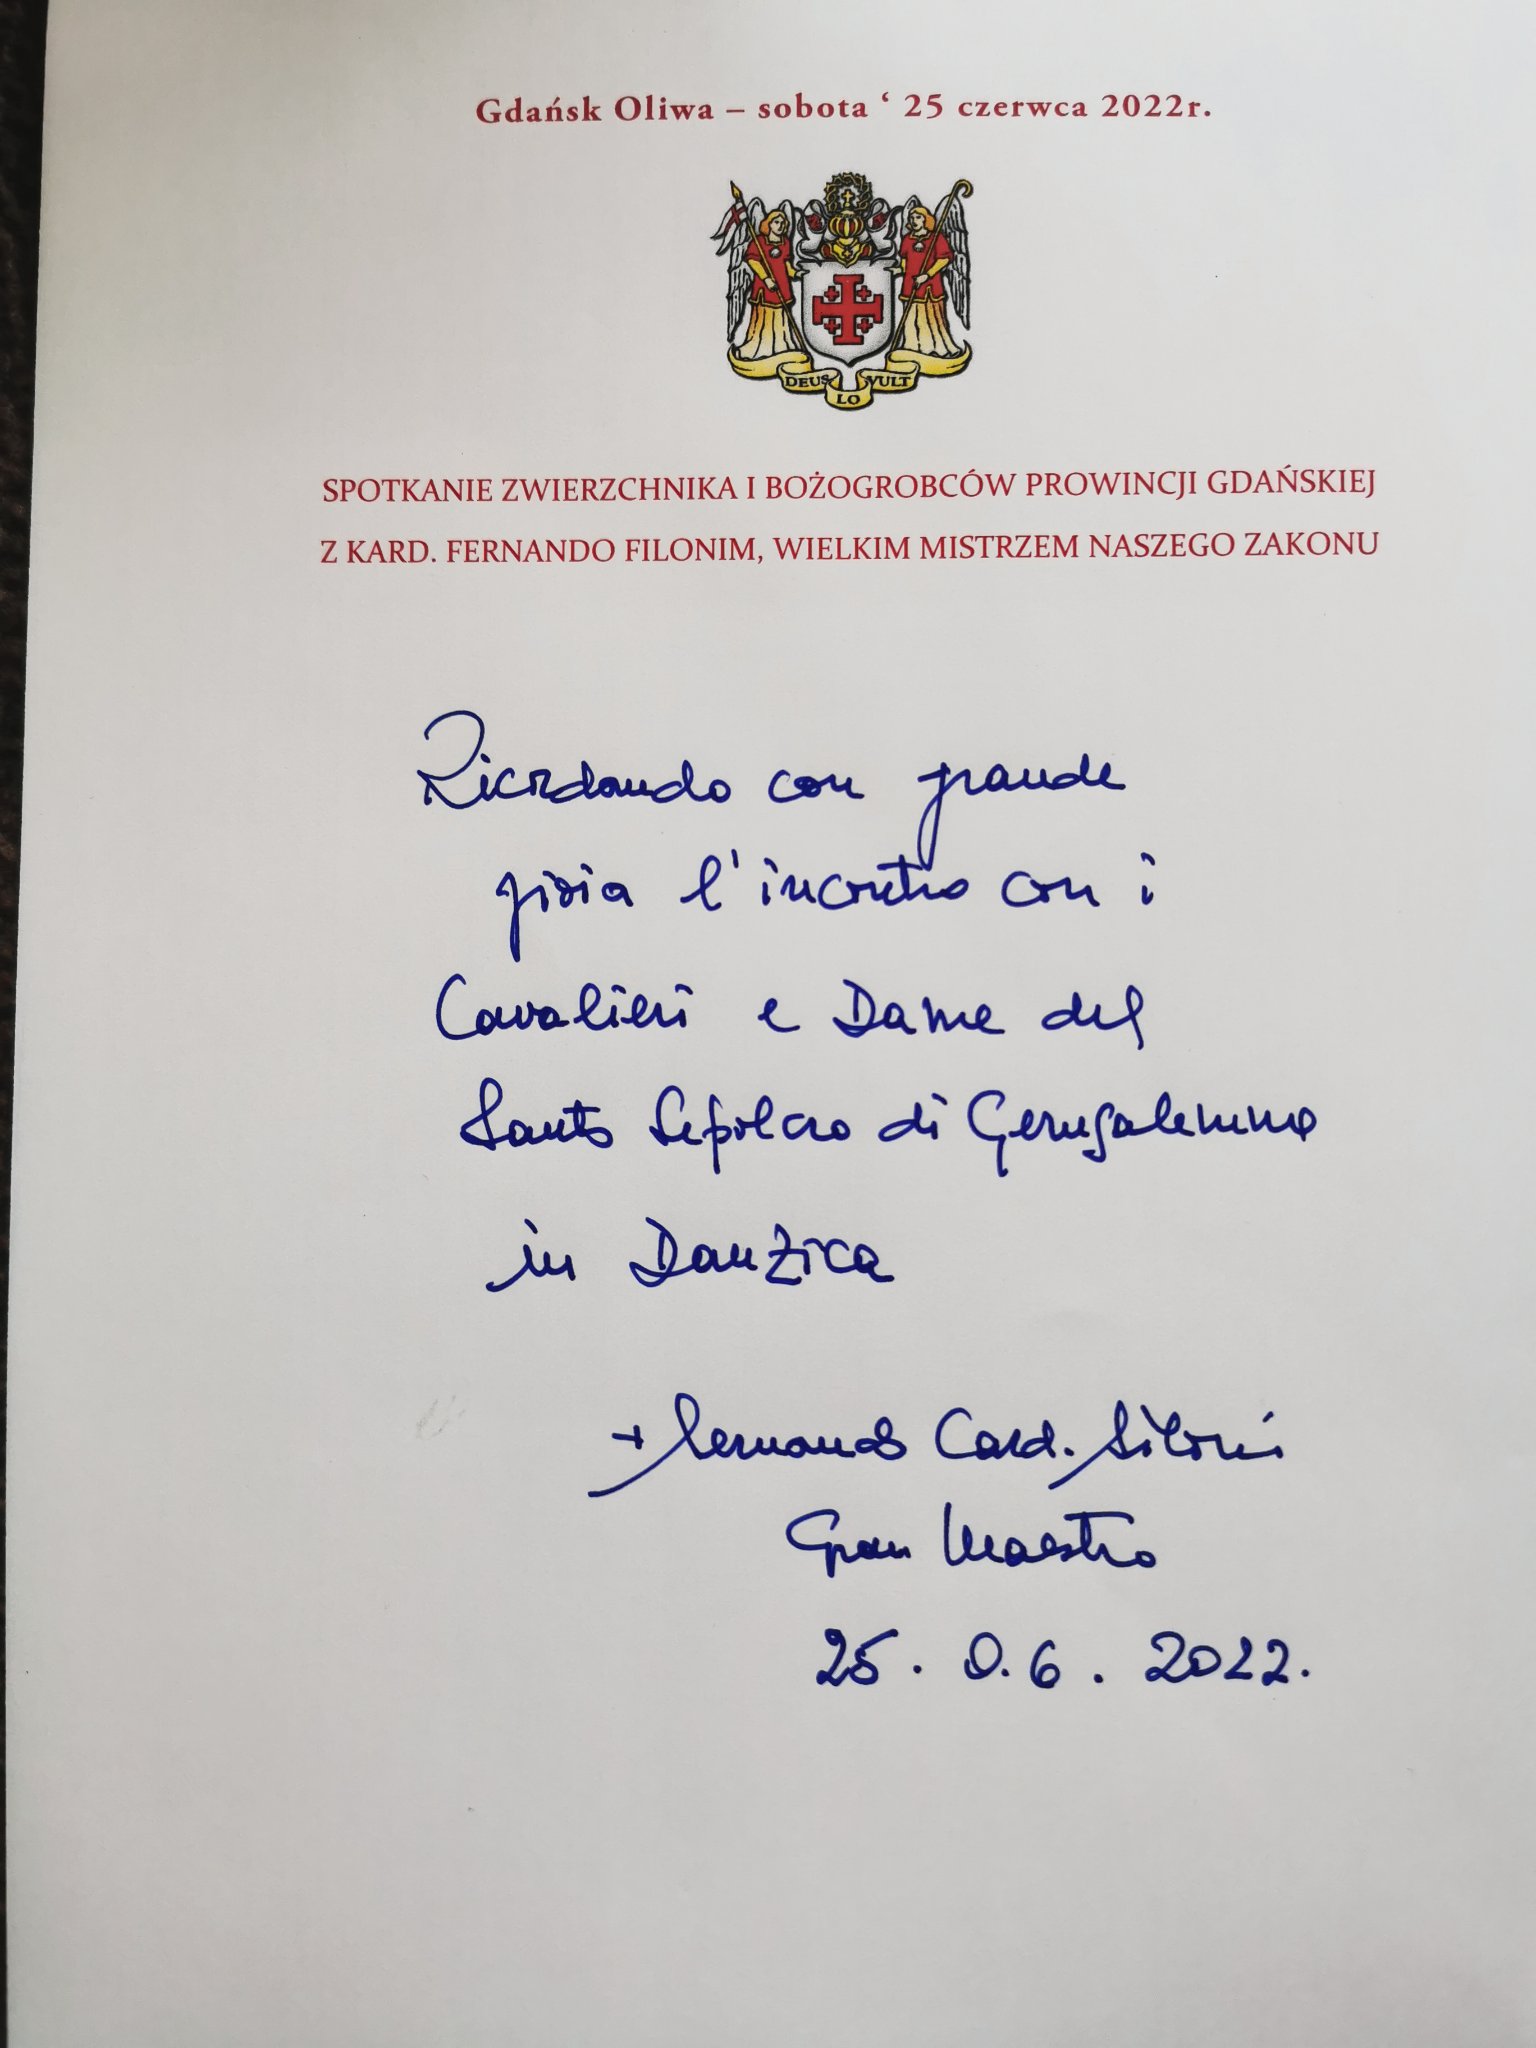 Gdańsk Oliwa – sobota ‘ 25 czerwca 2022r.
DEUS LO VULT
SPOTKANIE ZWIERZCHNIKA I BOŻOGROBCÓW PROWINCJI GDAŃSKIEJ
Z KARD. FERNANDO FILONIM, WIELKIM MISTRZEM NASZEGO ZAKONU
Ricordando con grande
gioia l'incontro con i
Cavalieri e Dame del
Santo Sepolcro di Gerusalemme
in Danzica
+ Fernando Card. Filoni
Gran Maestro
25. 0.6. 2022.